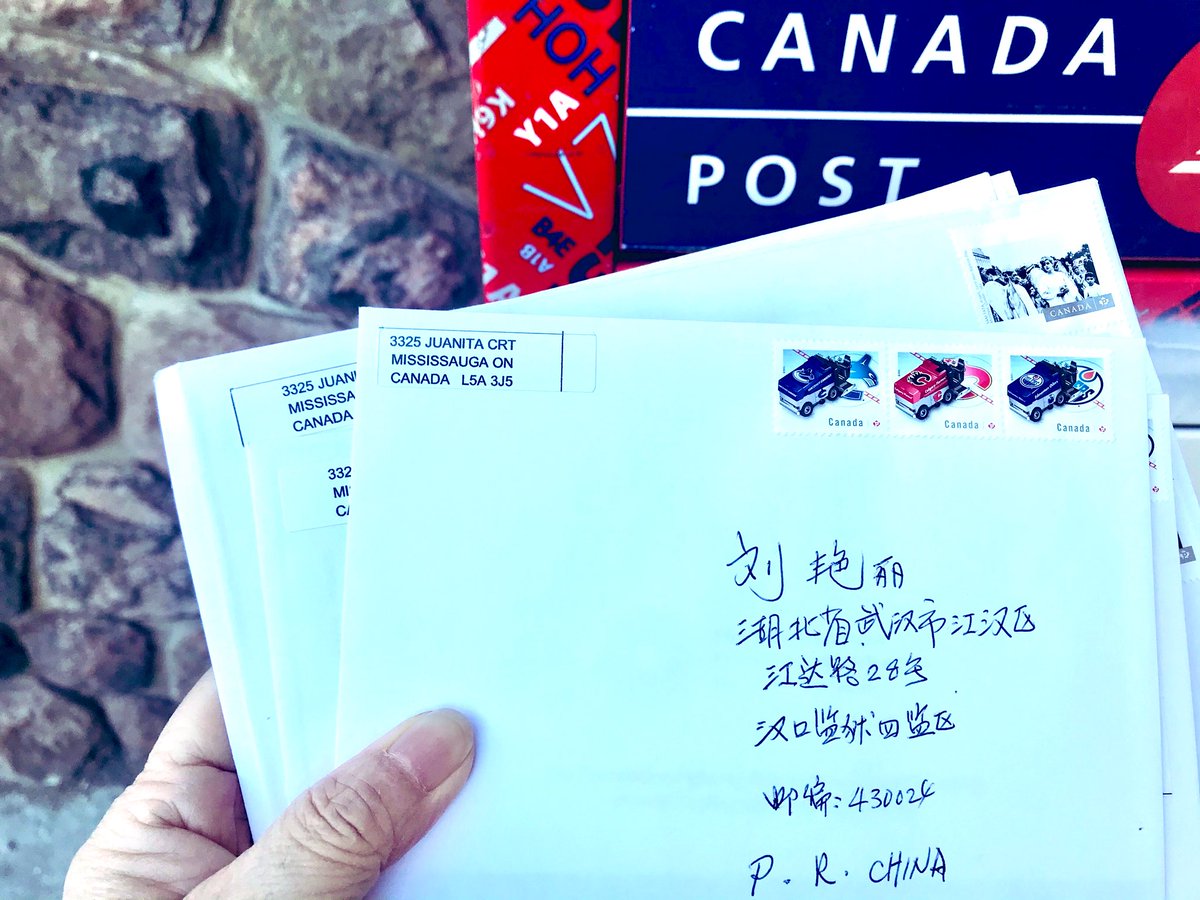 HOH
K9
Y1A
B4E
A1B
CANADA
POST
CANADA
3325 JUANITA CRT
MISSISSAUGA ON
CANADA L5A 3J5
3325
CANADA
Canada
Canada
Canada
刘艳丽
湖北省武汉市江汉区
江达路28号
汉口监狱四监区
邮编:430024
P. R. CHINA